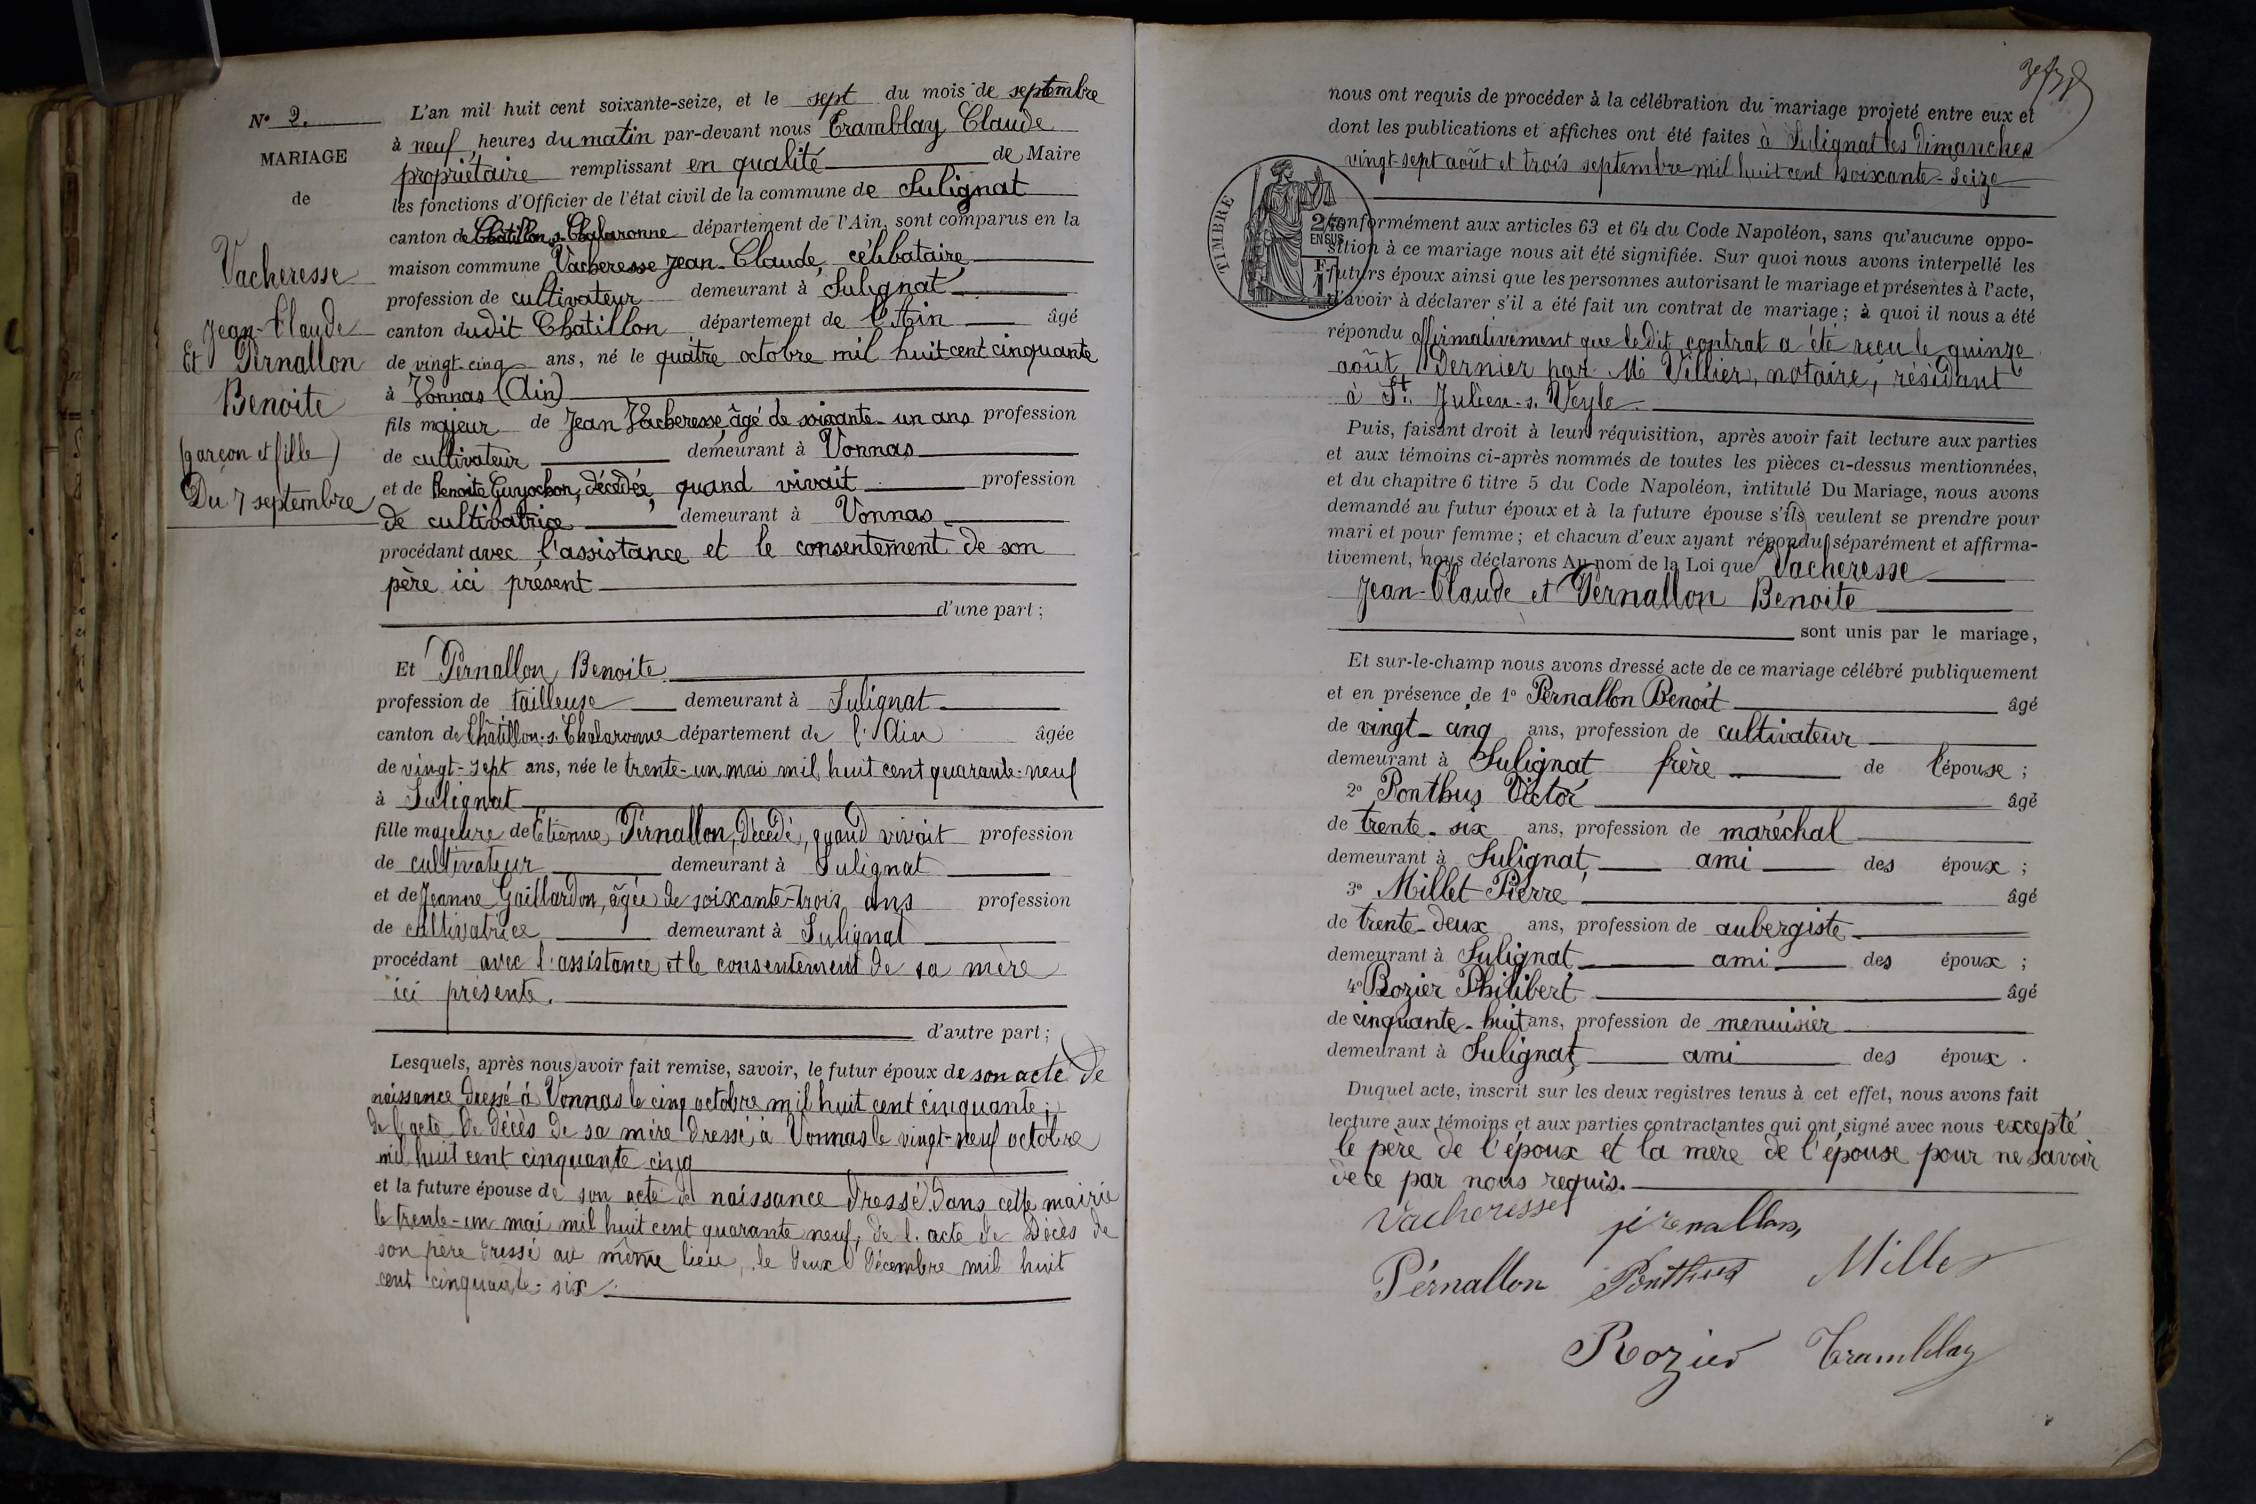 N° 2.
MARIAGE
de
Vacheresse
Jean-Claude
Et Pernallon
Benoite
(garçon et fille)
Du 7 septembre
L'an mil huit cent soixante-seize, et le sept du mois de septembre
à neuf heures du matin par-devant nous Tramblay Claude
propriétaire remplissant en qualité de Maire
les fonctions d'Officier de l'état civil de la commune de Sulignat
canton de Châtillon-s-Chalaronne département de l'Ain, sont comparus en la
maison commune Vacheresse Jean-Claude, célibataire
profession de cultivateur demeurant à Sulignat
canton dudit Chatillon département de l'Ain âgé
de vingt-cinq ans, né le quatre octobre mil huit cent cinquante
à Vonnas (Ain)
fils majeur de Jean Vacheresse, âgé de soixante-un ans profession
de cultivateur demeurant à Vonnas
et de Benoite Guyochon, décédée, quand vivait profession
de cultivatrice demeurant à Vonnas
procédant avec l'assistance et le consentement de son
père ici présent
d'une part ;
Et Pernallon Benoite
profession de tailleuse demeurant à Sulignat
canton de Châtillon-s-Chalaronne département de l'Ain âgée
de vingt-sept ans, née le trente-un mai mil huit cent quarante-neuf
à Sulignat
fille majeure de Etienne Pernallon, décédé, quand vivait profession
de cultivateur demeurant à Sulignat
et de Jeanne Gaillardon, âgée de soixante-trois ans profession
de cultivatrice demeurant à Sulignat
procédant avec l'assistance et le consentement de sa mère
ici présente.
d'autre part ;
Lesquels, après nous avoir fait remise, savoir, le futur époux de son acte de
naissance dressé à Vonnas le cinq octobre mil huit cent cinquante ;
de l'acte de décès de sa mère dressé à Vonnas le vingt-neuf octobre
mil huit cent cinquante cinq
et la future épouse de son acte de naissance dressé dans cette mairie
le trente-un mai mil huit cent quarante neuf, de l'acte de décès de
son père dressé au même lieu, le deux décembre mil huit
cent cinquante-six.
nous ont requis de procéder à la célébration du mariage projeté entre eux et
dont les publications et affiches ont été faites à Sulignat les dimanches
vingt-sept août et trois septembre mil huit cent soixante-seize
TIMBRE
2/10
EN SUS
F
1
conformément aux articles 63 et 64 du Code Napoléon, sans qu'aucune oppo-
sition à ce mariage nous ait été signifiée. Sur quoi nous avons interpellé les
futurs époux ainsi que les personnes autorisant le mariage et présentes à l'acte,
d'avoir à déclarer s'il a été fait un contrat de mariage ; à quoi il nous a été
répondu affirmativement que le dit contrat a été reçu le quinze
août dernier par Me Villier, notaire, résidant
à St. Julien-s. Veyle.
Puis, faisant droit à leur réquisition, après avoir fait lecture aux parties
et aux témoins ci-après nommés de toutes les pièces ci-dessus mentionnées,
et du chapitre 6 titre 5 du Code Napoléon, intitulé Du Mariage, nous avons
demandé au futur époux et à la future épouse s'ils veulent se prendre pour
mari et pour femme ; et chacun d'eux ayant répondu séparément et affirma-
tivement, nous déclarons Au nom de la Loi que Vacheresse
Jean-Claude et Pernallon Benoite
sont unis par le mariage,
Et sur-le-champ nous avons dressé acte de ce mariage célébré publiquement
et en présence de 1° Pernallon Benoît âgé
de vingt-cinq ans, profession de cultivateur
demeurant à Sulignat frère de l'épouse ;
2° Ponthus Victor âgé
de trente-six ans, profession de maréchal
demeurant à Sulignat, ami des époux ;
3° Millet Pierre âgé
de trente-deux ans, profession de aubergiste
demeurant à Sulignat ami des époux ;
4° Rozier Philibert âgé
de cinquante-huit ans, profession de menuisier
demeurant à Sulignat, ami des époux.
Duquel acte, inscrit sur les deux registres tenus à cet effet, nous avons fait
lecture aux témoins et aux parties contractantes qui ont signé avec nous excepté
le père de l'époux et la mère de l'épouse pour ne savoir
de ce par nous requis.
Vacheresse pernallon
Pérnallon Ponthus Millet
Rozier Tramblay